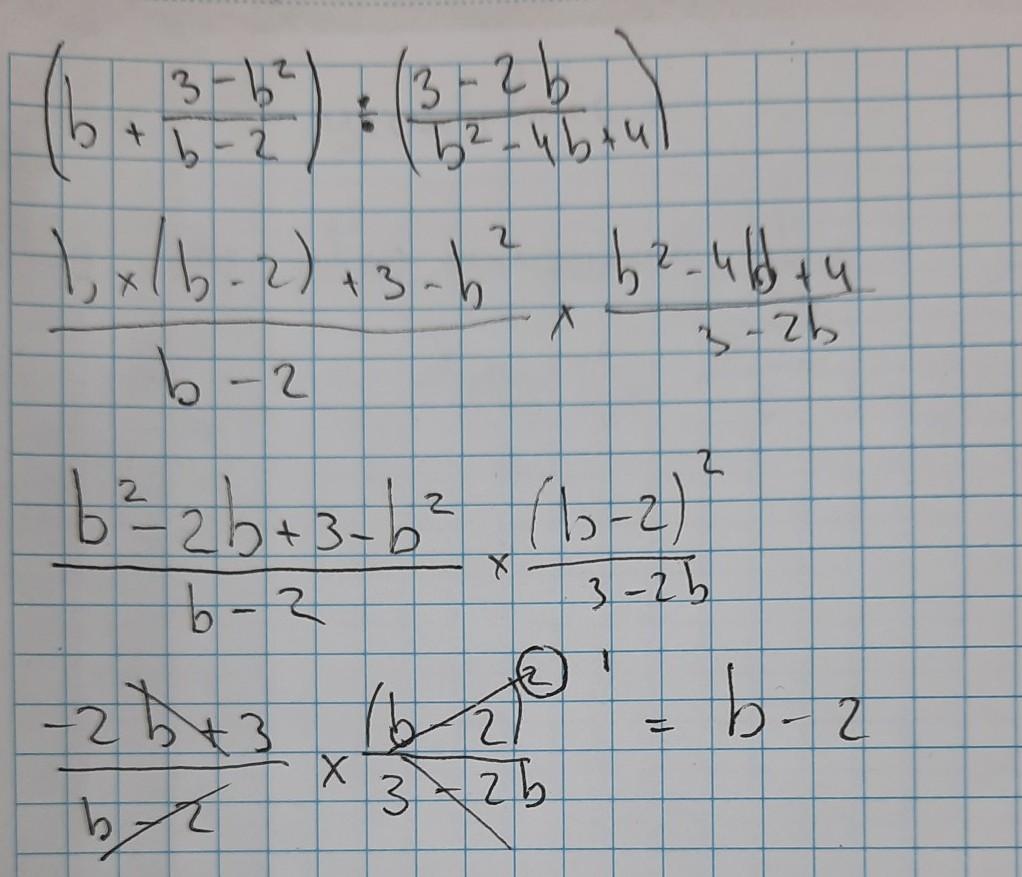 (b + (3 - b²)/(b - 2)) ÷ ((3 - 2b)/(b² - 4b + 4))
(b × (b - 2) + 3 - b²)/(b - 2) × (b² - 4b + 4)/(3 - 2b)
(b² - 2b + 3 - b²)/(b - 2) × (b - 2)²/(3 - 2b)
(-2b + 3)/(b - 2) × (b - 2)² ¹/(3 - 2b) = b - 2